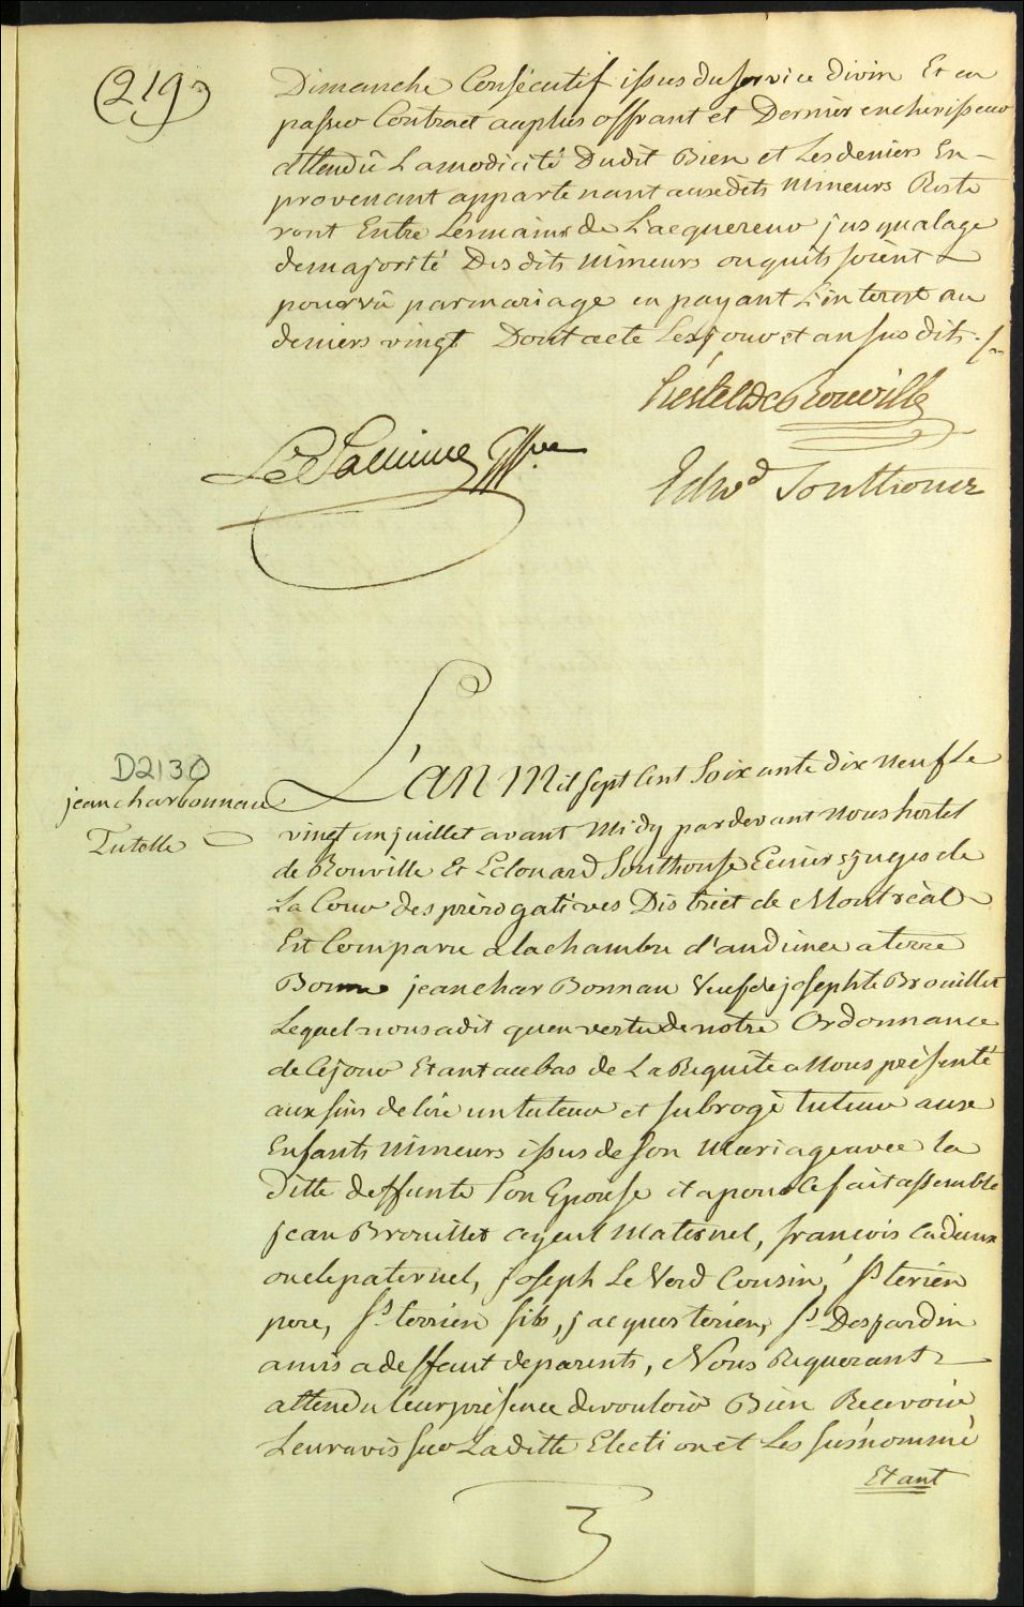 (219)
Dimanche Consécutif issus du service divin Et en
passer Contract au plus offrant et Dernier encherisseur
attendû La modicité Dudit Bien et Les deniers En-
provenant appartenant auxdits Mineurs Reste
ront Entre Les mains de L'acquereur jusqualage
demajorité Des dits Mineurs ouquils soient
pourvû par mariage en payant L'interest au
deniers vingt Dont acte Les jour et an susdits
hertel De Rouville
Edwd Southouse
D2130
jean charbonnau
Tutelle
L'AN Mil Sept Cent Soixante dix Neuf Le
vingt un juillet avant Midy pardevant Nous hertel
de Rouville Et Edouard Southouse Ecuiers juges de
La Cour des prérogatives District de Montréal
Est Comparu a la chambre d'audience a terre
Bonne jean char Bonnau Veuf de josephte Brouillet
Lequel nous a dit qu'en vertu de notre Ordonnance
de Cejour Etant au bas de La Requête a Nous présenté
aux fins de lire un tuteur et subrogé tuteur aux
Enfants Mineurs issus de son Mariage avec la
ditte deffunte son Epouse it a pour ce fait assemblé
jean Brouillet ayeul Maternel, francois Cadieux
oncle paternel, joseph Le Verd Cousin, fs terien
pere, fs terrien fils, jacques terien, fs Desjardin
amis a deffaut de parents, Nous Requerant
attendu leur présence de vouloir Bien Recevoir
Leur avis sur La ditte Election et Les susnommé
Etant